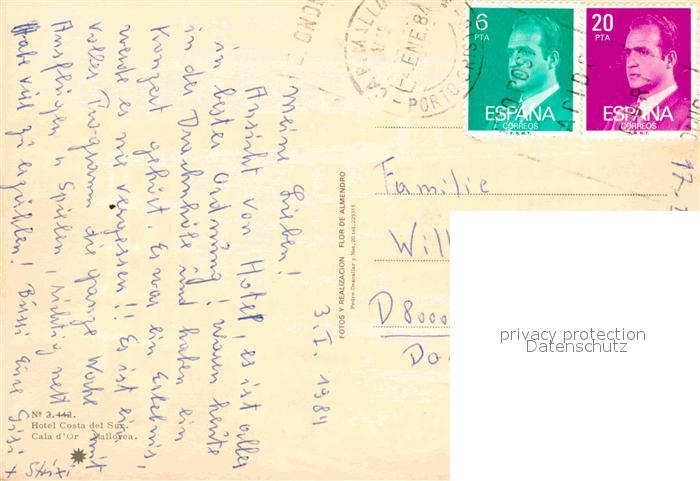 3. I. 1984
Meine Lieben!
Ansicht von Hotel, es ist alles
in bester Ordnung! waren heute
in der Drachhöhle und haben ein
Konzert gehört. Es war ein Erlebnis!
werde es nie vergessen!! Es ist ein
volles Programm die ganze Woche mit
Ausflügen u Spielen, richtig nett
Habe viel zu erzählen! Bussi Eure Gisi
+ Strixi
Nº 3.442.
Hotel Costa del Sur.
Cala d'Or Mallorca.
FOTOS Y REALIZACION FLOR DE ALMENDRO
Pedro Dezcallar y Net, 20 tel. 223315
6
PTA
ESPAÑA
CORREOS
F.N.M.T.
20
PTA
ESPAÑA
CORREOS
F.N.M.T.
ENE.84
PORTO CRISTO
Familie
Will
D 8000
privacy protection
Datenschutz